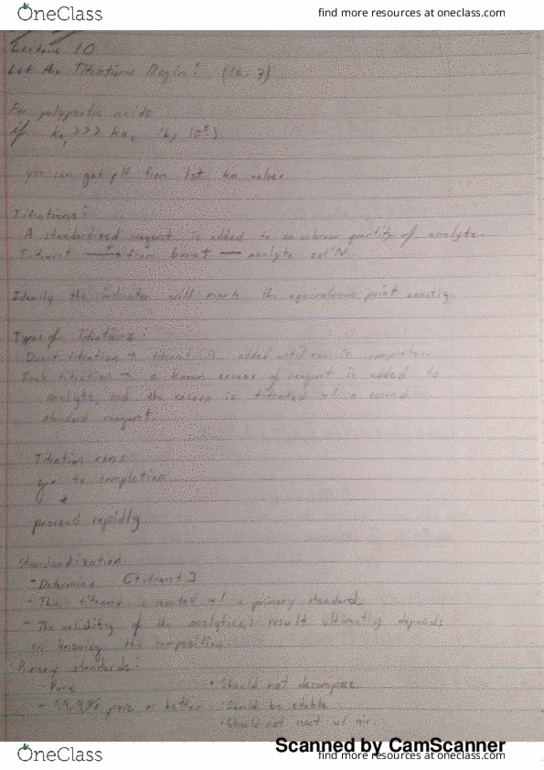 OneClass
find more resources at oneclass.com
Lecture 10
Let the Titrations Begin! (Ch. 7)
For polyprotic acids
if ka₁ >>> ka₂ (by 10³)
you can get pH from 1st ka value.
Titrations:
A standardized reagent is added to an unknown quantity of analyte.
Titrant from buret analyte sol'N
Ideally the indicator will mark the equivalence point exactly.
Types of Titrations:
Direct titration → titrant is added until rxn is complete.
Back titration → a known excess of reagent is added to
analyte, and the excess is titrated w/ a second
standard reagent.
Titration rxns
go to completion
+
proceed rapidly
Standardization
- Determine [titrant]
- The titrant is reacted w/ a primary standard
- The validity of the analytical result ultimately depends
on knowing the composition.
Primary standards:
- Pure • Should not decompose
- 99.9% pure or better • Should be stable
• Should not react w/ air.
Scanned by CamScanner
OneClass
find more resources at oneclass.com